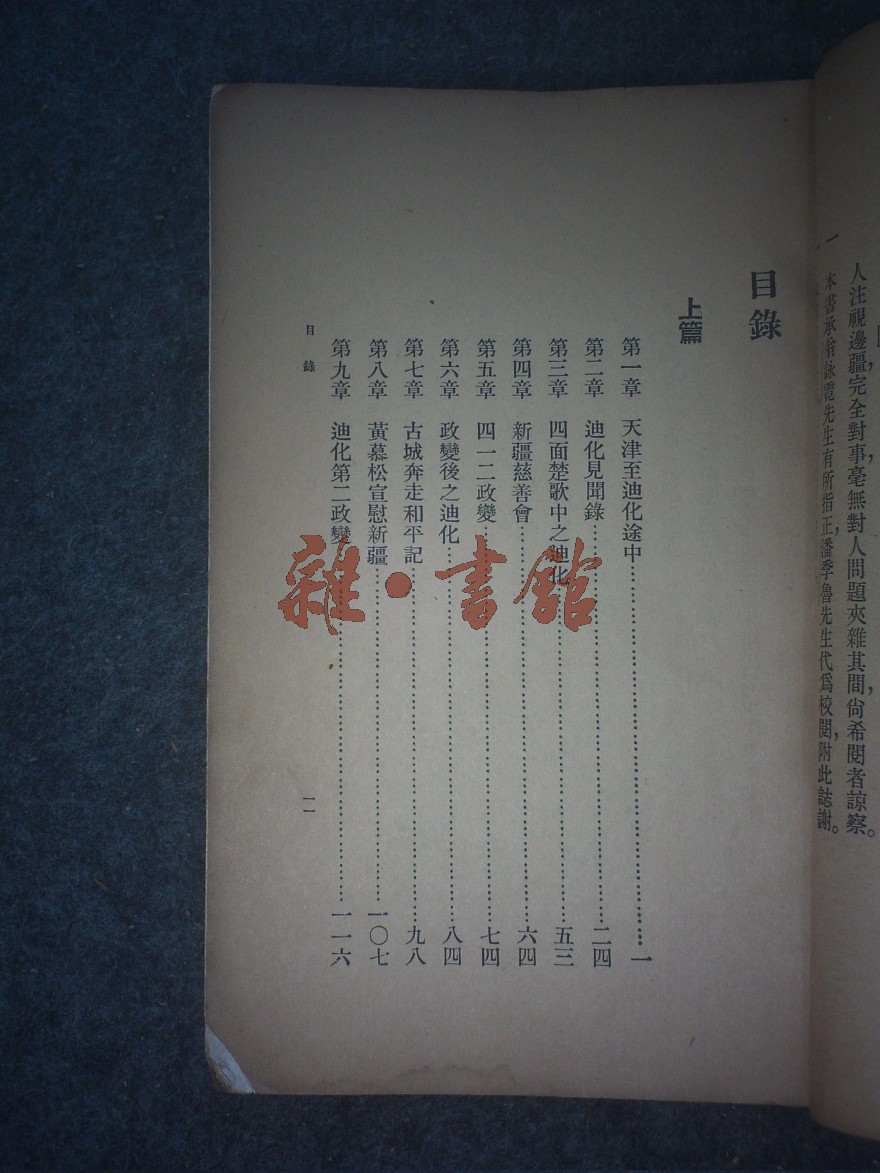 人注視邊疆,完全對事,毫無對人問題夾雜其間,尙希閱者諒察。
一
本書承翁詠霓先生有所指正,潘季魯先生代爲校閱,附此誌謝。
目錄
上篇
第一章 天津至迪化途中……一
第二章 迪化見聞錄……二四
第三章 四面楚歌中之迪化……五三
第四章 新疆慈善會……六四
第五章 四一二政變……七四
第六章 政變後之迪化……八四
第七章 古城奔走和平記……九八
第八章 黃慕松宣慰新疆……一〇七
第九章 迪化第二政變……一一六
目錄
一一
雜·書館